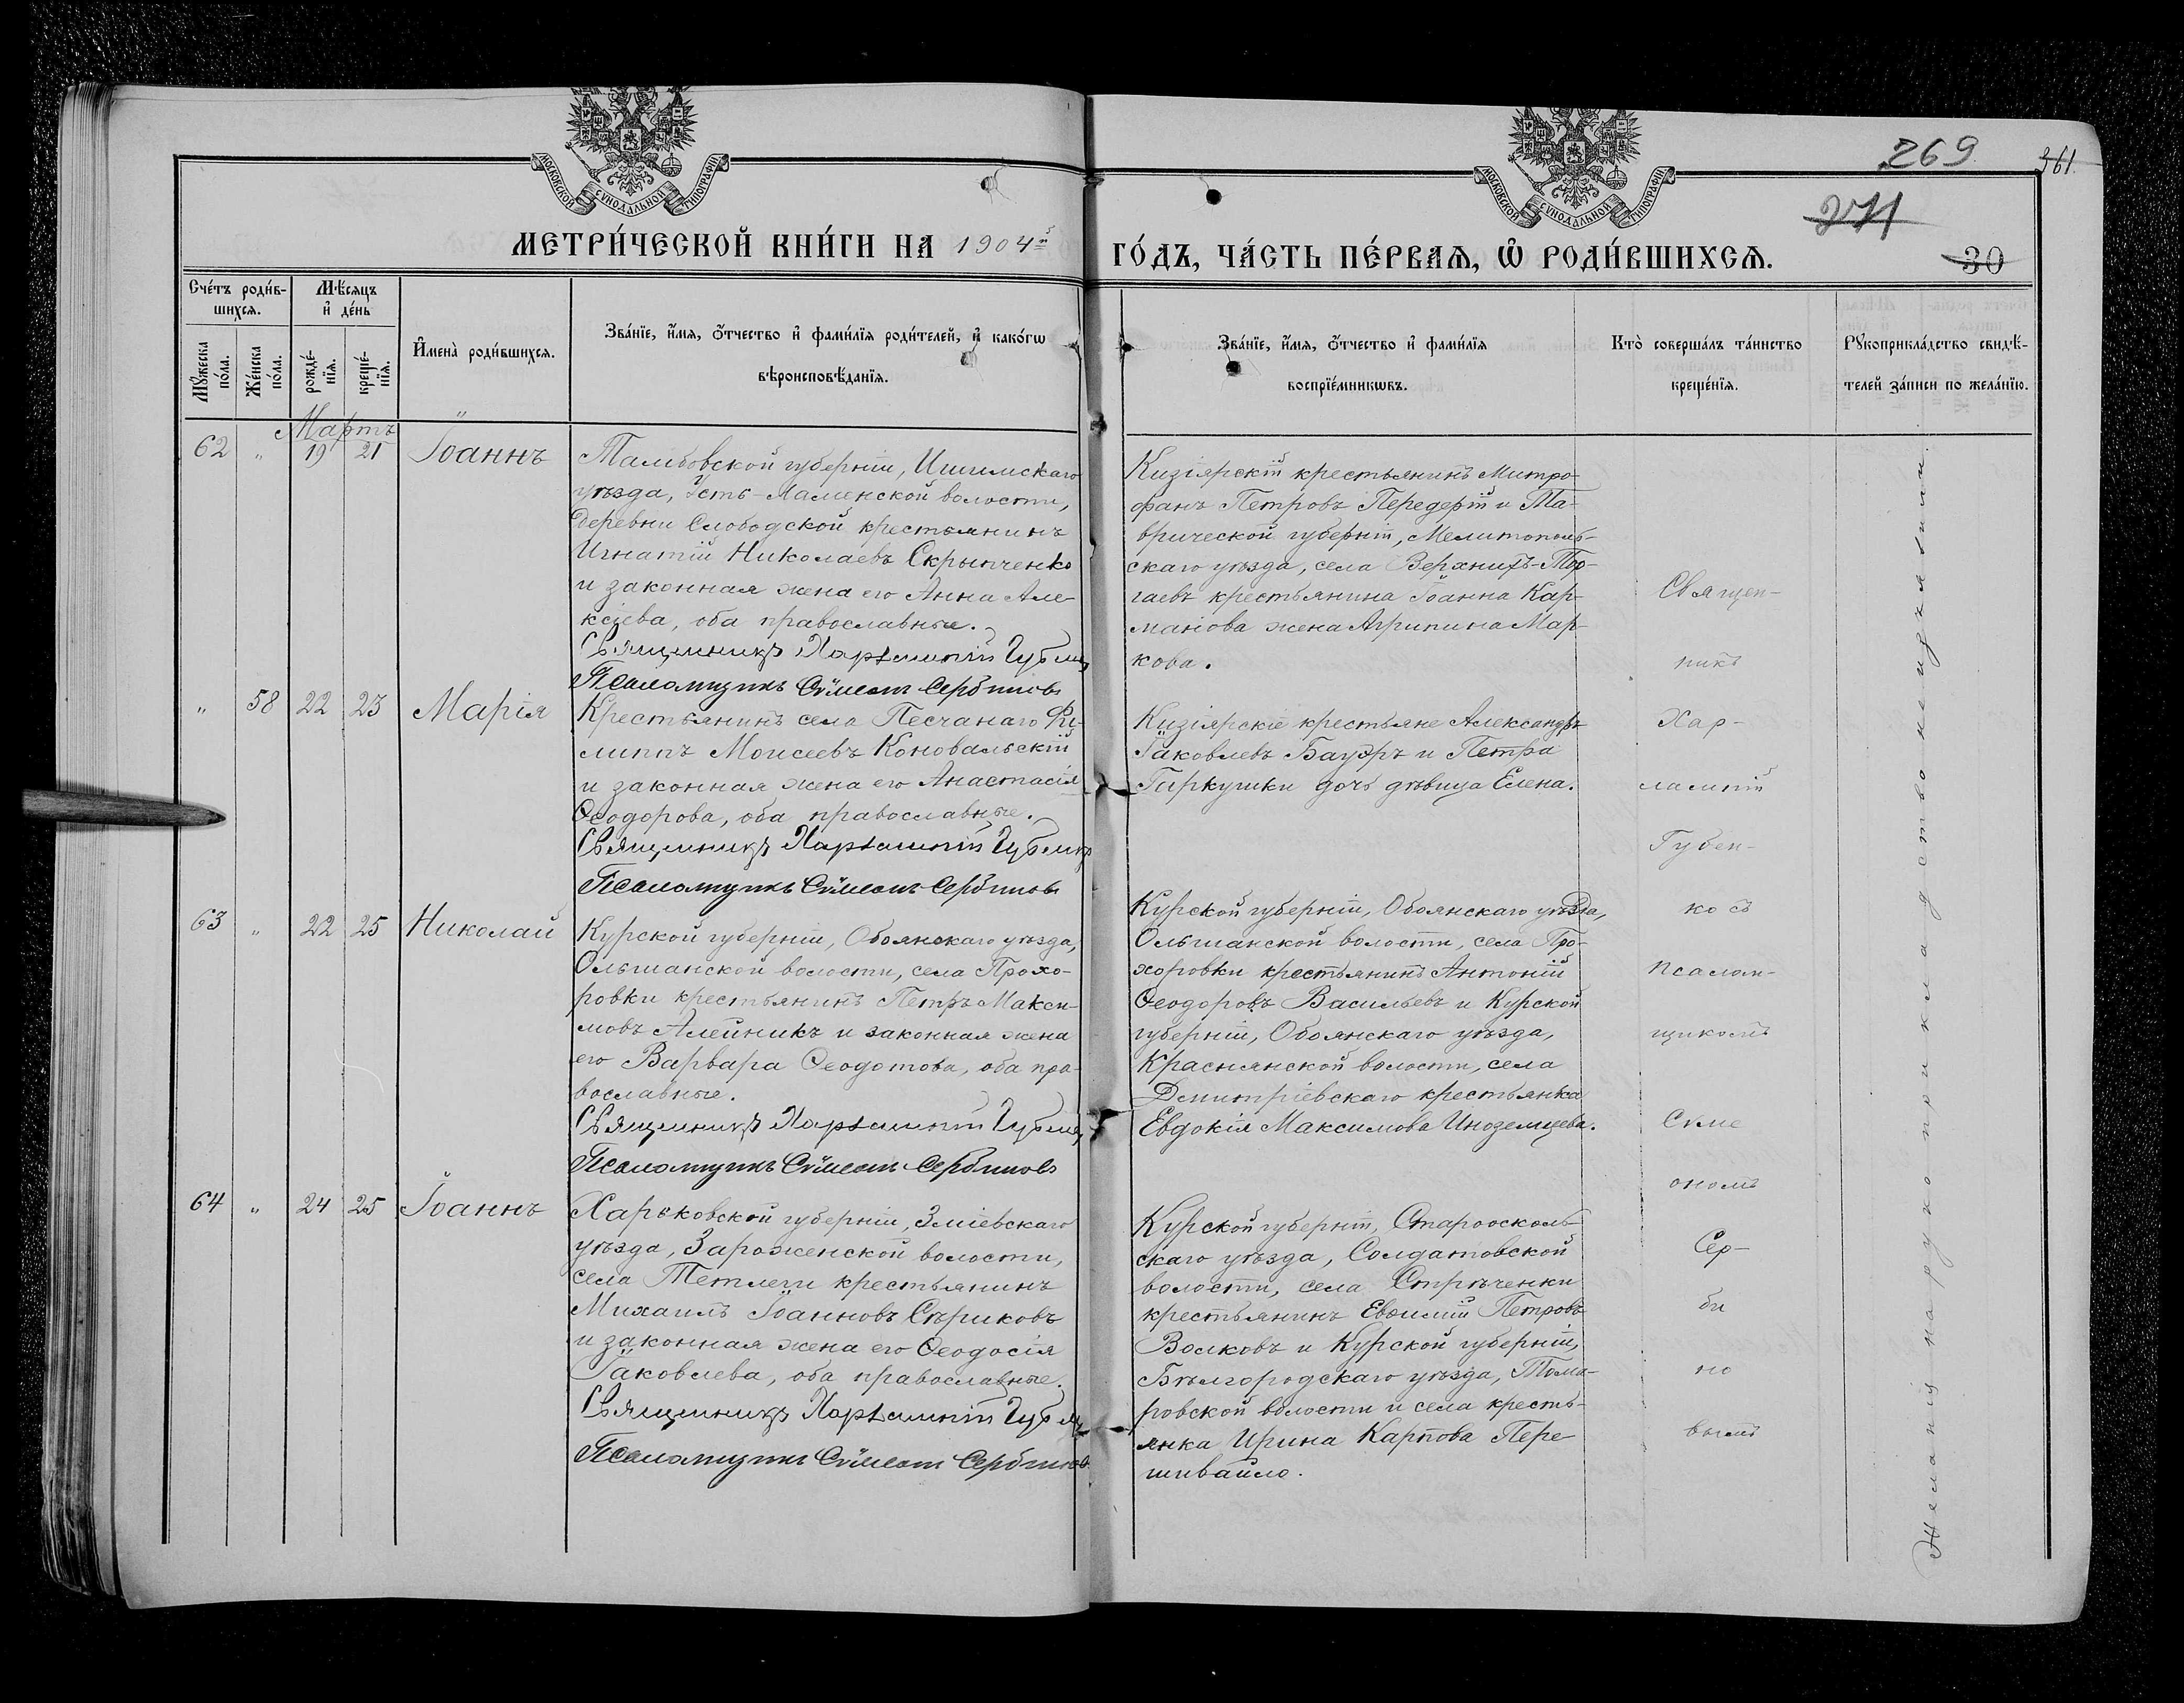 МОСКОВСКОЙ СѴНОДАЛЬНОЙ ТИПОГРАФІИ
МОСКОВСКОЙ СѴНОДАЛЬНОЙ ТИПОГРАФІИ
269
361.
271
30
МЕТРИ́ЧЕСКОЙ КНИ́ГИ НА 1904й
ГО́ДЪ, ЧА́СТЬ ПЕ́РВАѦ, Ѽ РОДИ́ВШИХСѦ.
Сче́тъ роди́в-
шихсѧ.
Мꙋ́жеска по́ла.
Же́нска по́ла.
Мѣ́сѧцъ
и҆ де́нь
рожде́-
нїѧ.
креще́-
нїѧ.
И҆мена̀ роди́вшихсѧ.
Зва́нїе, и҆́мѧ, ѻ҆́тчество и҆ фами́лїѧ роди́телей, и҆ како́гѡ
вѣроисповѣ́данїѧ.
Зва́нїе, и҆́мѧ, ѻ҆́тчество и҆ фами́лїѧ
воспрїе́мникѡвъ.
Кто̀ соверша́лъ та́инство
креще́нїѧ.
Рꙋкоприкла́дство свидѣ́-
телей за́писи по жела́нїю.
Мартъ
62 " 19 21 Іоаннъ
Тамбовской губерніи, Ишимскаго
уѣзда, Усть-Ламенской волости,
деревни Слободской крестьянинъ
Игнатій Николаевъ Скрыпченко
и законная жена его Анна Але-
ксіева, оба православные.
Священникъ Харлампій Губенко
Псаломщикъ Сѵмеонъ Сербиновъ
Кизіярскій крестьянинъ Митро-
фанъ Петровъ Передерій и Та-
врической губерніи, Мелитополь-
скаго уѣзда, села Верхнихъ-Тор-
гаевъ крестьянина Іоанна Кар-
манова жена Агрипина Мар-
кова.
" 58 22 23 Марія
Крестьянинъ села Песчанаго Фи-
липпъ Моисеевъ Коновальскій
и законная жена его Анастасія
Ѳеодорова, оба православные.
Священникъ Харлампій Губенко
Псаломщикъ Сѵмеонъ Сербиновъ
Кизіярскіе крестьяне Александръ
Іаковлевъ Бауэръ и Петра
Гиркушки дочь дѣвица Елена.
63 " 22 25 Николай
Курской губерніи, Обоянскаго уѣзда,
Ольшанской волости, села Прохо-
ровки крестьянинъ Петръ Макси-
мовъ Алейникъ и законная жена
его Варвара Ѳеодотова, оба пра-
вославные.
Священникъ Харлампій Губенко
Псаломщикъ Сѵмеонъ Сербиновъ
Курской губерніи, Обоянскаго уѣзда,
Ольшанской волости, села Про-
хоровки крестьянинъ Антоній
Ѳеодоровъ Васильевъ и Курской
губерніи, Обоянскаго уѣзда,
Краснянской волости, села
Димитріевскаго крестьянка
Евдокія Максимова Иноземцева.
64 " 24 25 Іоаннъ
Харьковской губерніи, Зміевскаго
уѣзда, Зароженской волости,
села Тетлеги крестьянинъ
Михаилъ Іоанновъ Сѣриковъ
и законная жена его Ѳеодосія
Іаковлева, оба православные.
Священникъ Харлампій Губенко
Псаломщикъ Сѵмеонъ Сербиновъ
Курской губерніи, Старооскольс-
скаго уѣзда, Солдатовской
волости, села Стрѣченки
крестьянинъ Евѳимій Петровъ
Волковъ и Курской губерніи,
Бѣлгородскаго уѣзда, Тома-
ровской волости и села кресть-
янка Ирина Карпова Пере-
шивайло.
Священ-
никъ
Хар-
лампій
Губен-
ко съ
псалом-
щикомъ
Сѵме
ономъ
Сер-
би
но
вымъ
Желанія на рукоприкладство не изъявили.